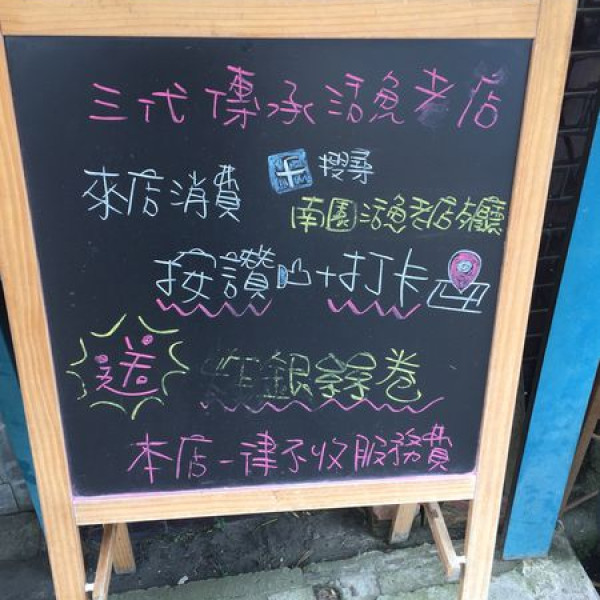 三代傳承活魚老店
來店消費
搜尋
南園活魚老店餐廳
按讚+打卡
送
銀絲卷
本店一律不收服務費